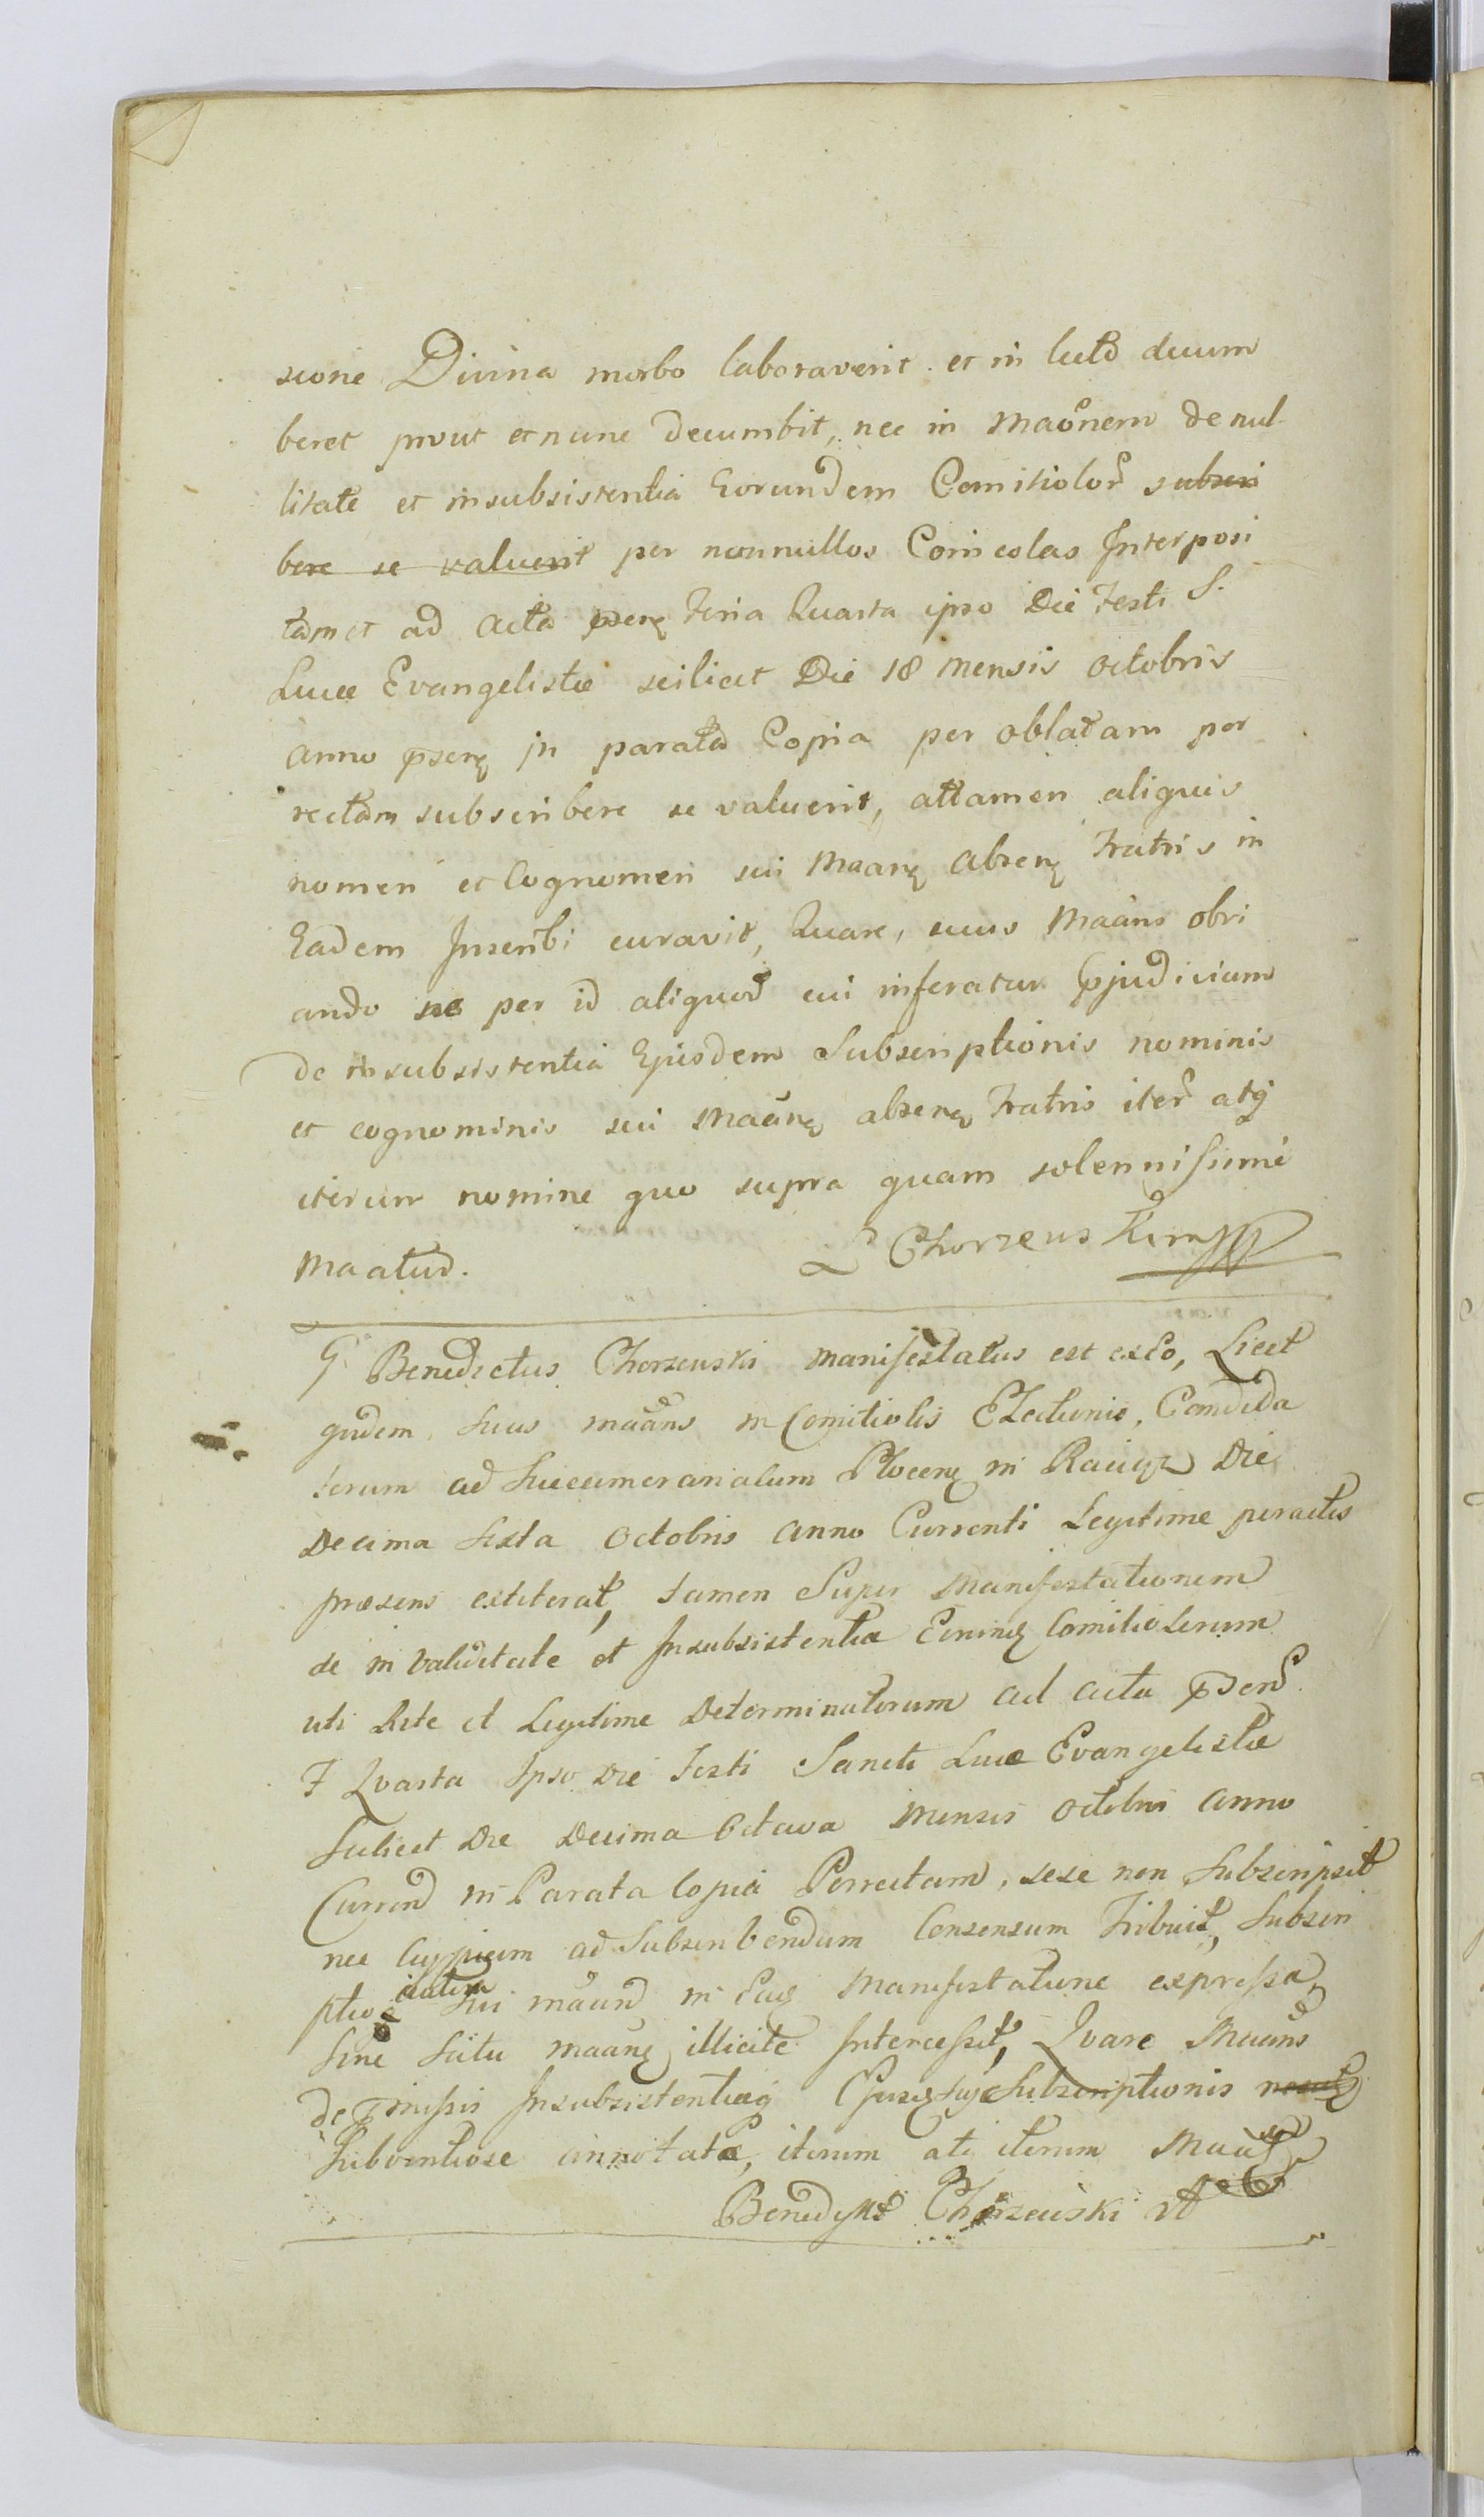 scione Divina morbo laboraverit et in lecto decum
beret prout et nunc decumbit, nec in Maõnem de nul
litate et insubsistentia Eorundem Comitiolor subscri
bere se valuerit per nonnullos Comcolas Interposi
tam et ad acta pseñ Feria Quarta ipso Die Festi S.
Lucæ Evangelistæ scilicet Die 18 mensis octobris
anno pseñ in parata Copia per oblatam por
rectam subscribere se valuerit, attamen aliquis
nomen et Cognomen sui Maañ Absen Fratris in
Eadem Inscribi curavit, Quare, suus Maãns obvi
ando ne per id aliquod cui inferatur pjudicium
de insubsistentia Ejusdem Subscriptionis nominis
et cognominis sui Maãn absen Fratris iter atq
iterum nomine quo supra quam solennissime
Maatur. Chorzewski mpp
G Benedictus Chorzewski manifestatus est ex eo, Licet
quidem suus maãns in Comitiolis Electionis, Candida
torum ad Succamerariatum Plocen in Raciąż Die
Decima Sexta Octobris Anno Currenti Legitime peractis
præsens extiterat, tamen Super Manifestationem
de in validitate et Insubsistentia Comitiolorum
uti Rite et Legitime Determinatorum ad acta psen
F Quarta Ipso Die Festi Sancti Lucæ Evangelistæ
Scilicet Die Decima Octava Mensis Octobris Anno
Curren in Parata Copia Porrectam, sese non Subscripsit
nec Cuipiam ad Subscribendum Consensum Tribuit, Subscri
ptio autem Sui maãn in Eaq Manifestatione expressa,
Sine Scitu maãn illicite Intercessit, Quare Maãns
de pmissis Insubsistentiaq Ejusq Subscriptionis
Subventiose annotatæ, iterum atq iterum Maãt
Benedykt Chorzewski